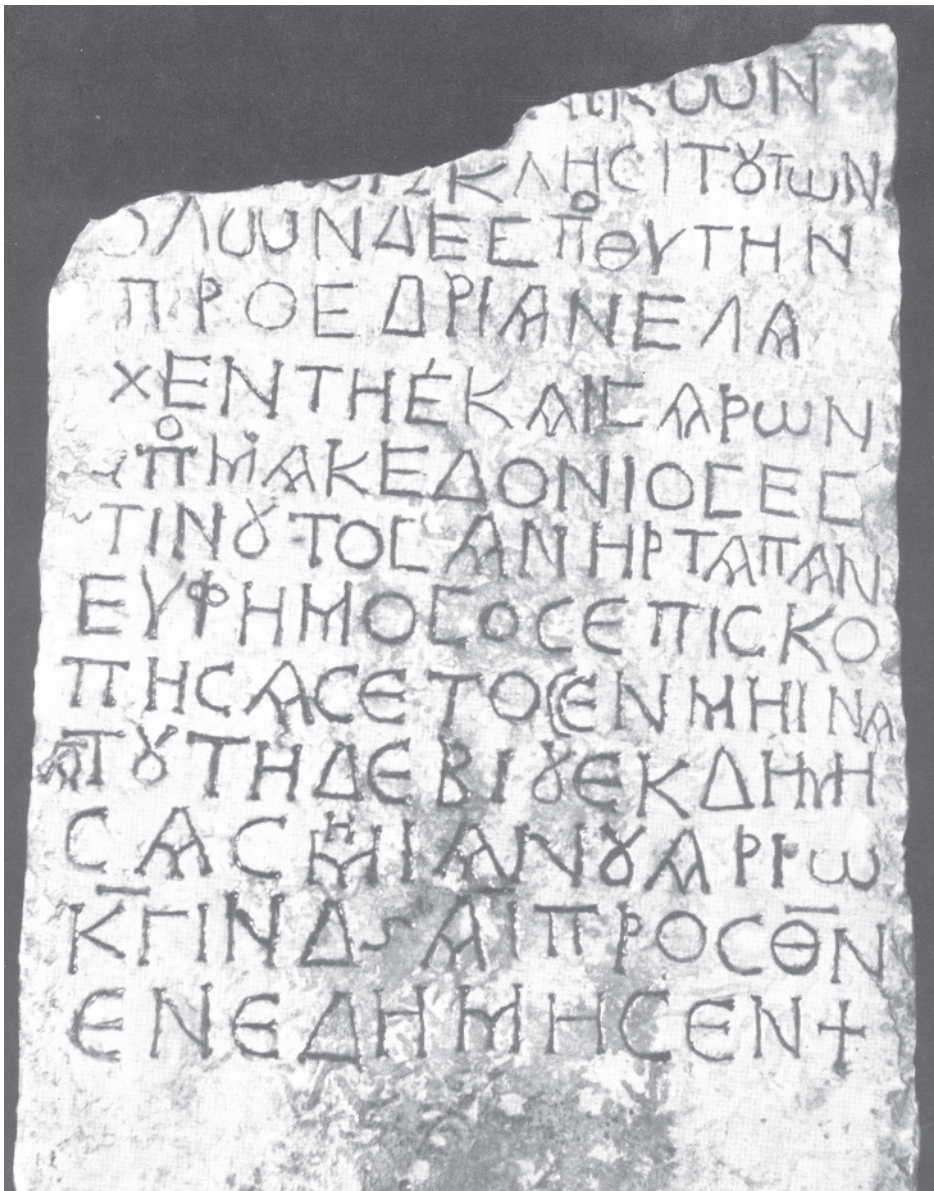 ΚωΝ
ΚΛΗϹΙΤȣΤωΝ
ΟΛωΝΔΕΕΠͦΘΥΤΗΝ
ΠΡΟΕΔΡΙΑΝΕΛΑ
ΧΕΝΤΗΈΚΑΙϹΑΡωΝ
ΠͦΜΑΚΕΔΟΝΙΟϹΕϹ
ΤΙΝȣΤΟϹΑΝΗΡΤΑΠΑΝ
ΕΥΦΗΜΟϹΟϹΕΠΙϹΚΟ
ΠΗϹΑϹΕΤΟϹΕΝΜΗΙΝΑ
ΤȣΤΗΔΕΒΙȣΕΚΔΗΜΗ
ϹΑϹΜΗΙΑΝȣΑΡΙω
Κ̅Γ̅ΙΝΔSΑ̅Ι̅ΠΡΟϹΘ̅Ν
ΕΝΕΔΗΜΗϹΕΝ+